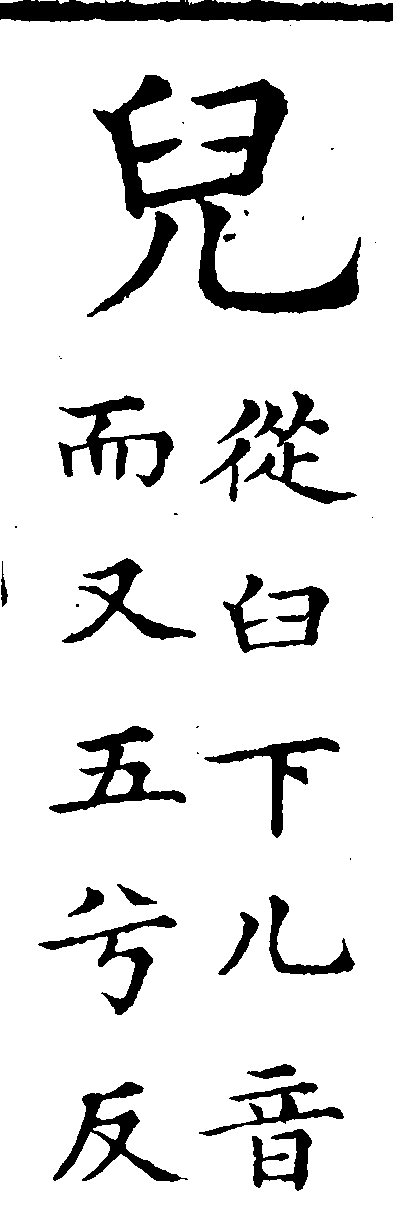 兒
從臼下儿音
而又五兮反